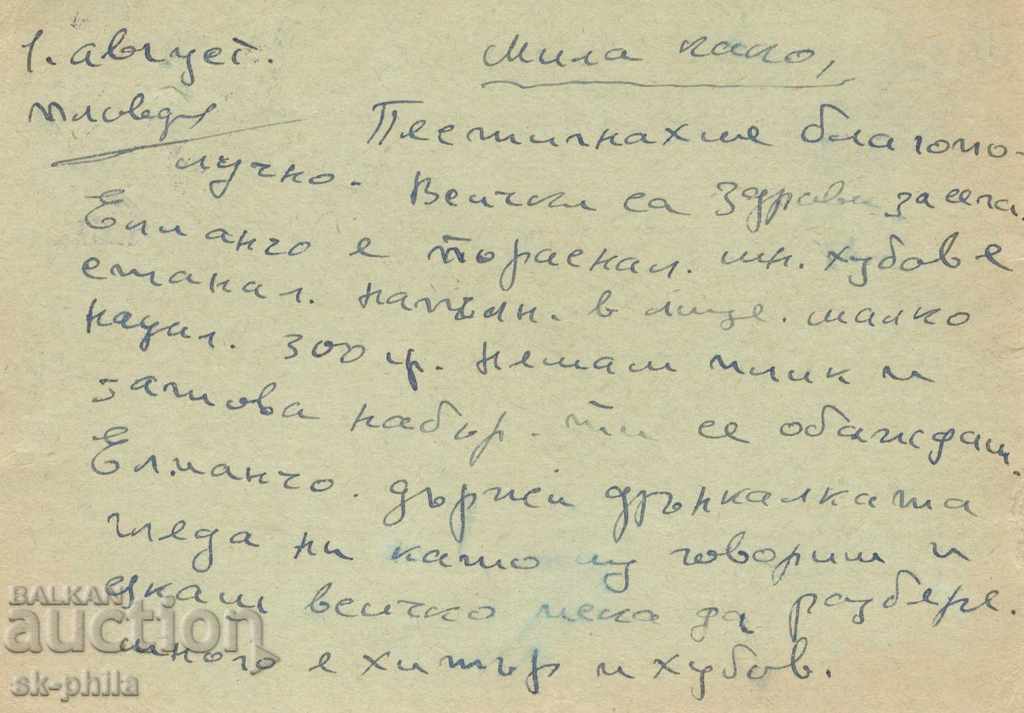 1. август.
Мила како,
Пловдив
Пестигнахме благопо-
лучно. Всички са здрави засега,
Елианчо е пораснал. мн. хубов е
станал. напълн. в лице. малко
нацил. 300 гр. немам плик и
затова набър. ти се обаждам.
Елианчо. държи дрънкалката
гледа ни като му говорим и
цкаш всичко иска да разбере.
много е хитър и хубов.
BALKAN
auction
sk-phila